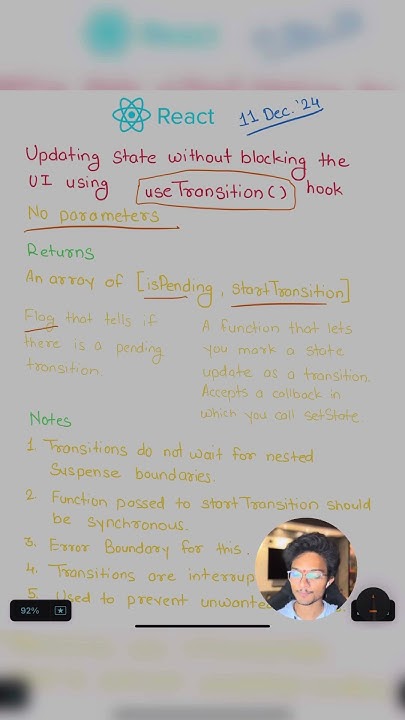 React
React
11 Dec. '24
Updating state without blocking the
UI using useTransition() hook
No parameters
Returns
An array of [isPending, startTransition]
Flag that tells if
there is a pending
transition.
A function that lets
you mark a state
update as a transition.
Accepts a callback in
which you call setState.
Notes
1. Transitions do not wait for nested
Suspense boundaries.
2. Function passed to startTransition should
be synchronous.
3. Error Boundary for this.
4. Transitions are interrup
5. Used to prevent unwante
92%